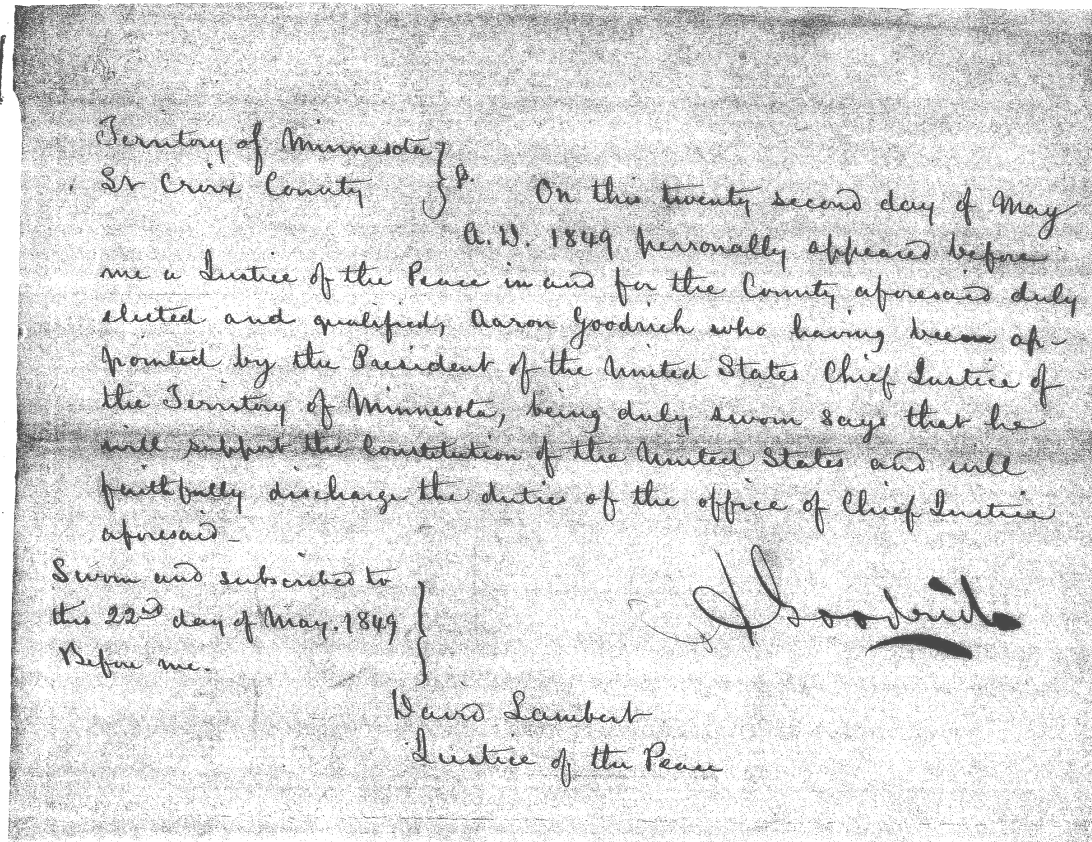 Territory of Minnesota } ss.
St Croix County
On this twenty second day of May
A.D. 1849 personally appeared before
me a Justice of the Peace in and for the County aforesaid duly
elected and qualified, Aaron Goodrich who having been ap-
pointed by the President of the United States Chief Justice of
the Territory of Minnesota, being duly sworn says that he
will support the Constitution of the United States and will
faithfully discharge the duties of the office of Chief Justice
aforesaid-
Sworn and subscribed to
this 22nd day of May. 1849
Before me.
A Goodrich
David Lambert
Justice of the Peace